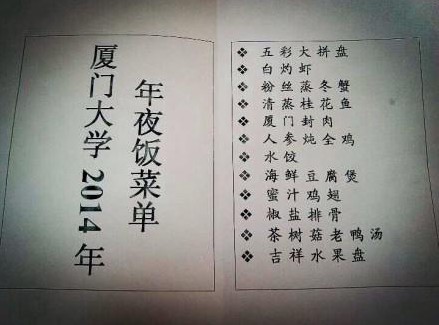 厦门大学2014年
年夜饭菜单
五彩大拼盘
白灼虾
粉丝蒸冬蟹
清蒸桂花鱼
厦门封肉
人参炖全鸡
水饺
海鲜豆腐煲
蜜汁鸡翅
椒盐排骨
茶树菇老鸭汤
吉祥水果盘